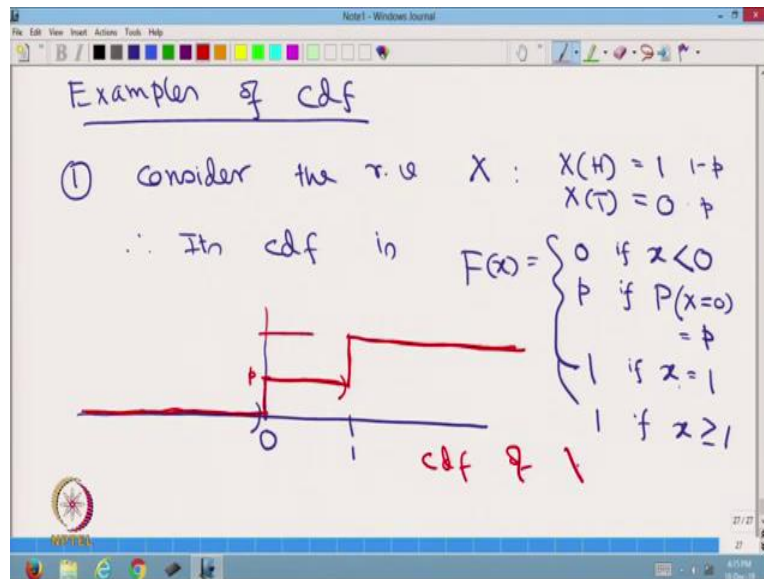 Note1 - Windows Journal
File Edit View Insert Actions Tools Help
Examples of cdf
① Consider the r.v X : X(H) = 1 1-p
X(T) = 0 p
∴ Its cdf is F(x) = { 0 if x < 0
p if P(X=0)
= p
1 if x = 1
1 if x ≥ 1
p
0
1
cdf of
NPTEL
27 / 27
27
4:15 PM